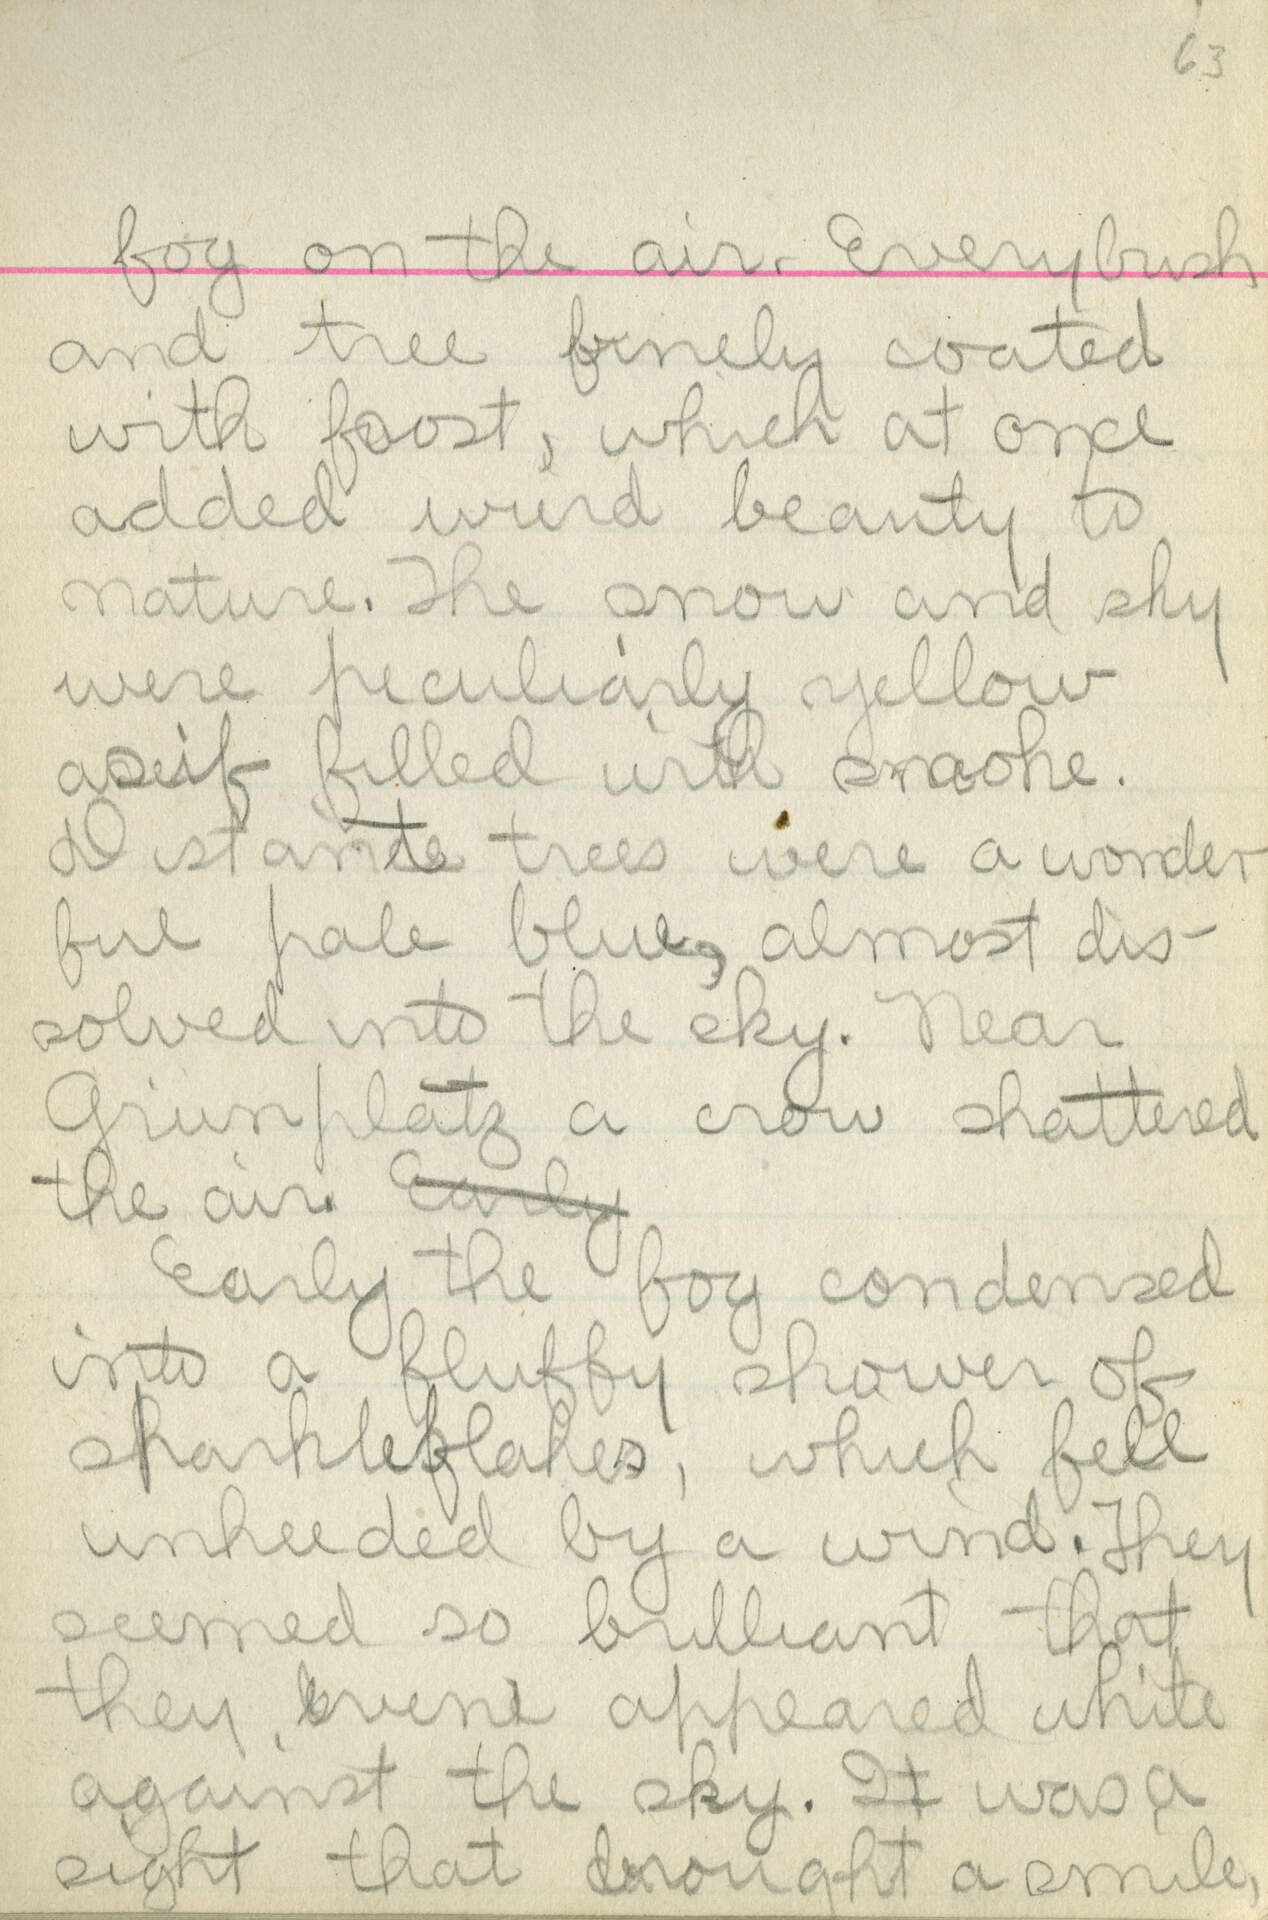 63
fog on the air. Every bush
and tree finely coated
with froost, which at once
added weird beauty to
nature. The snow and sky
were peculiarly yellow
as if filled with smoke.
Distante trees were a wonder
ful pale blue, almost dis-
solved into the sky. Near
Grunplatz a crow shattered
the air. Early
Early the fog condensed
into a fluffy shower of
sparkleflakes, which fell
unheeded by a wind. They
seemed so brilliant that
they even appeared white
against the sky. It was a
sight that brought a smile,